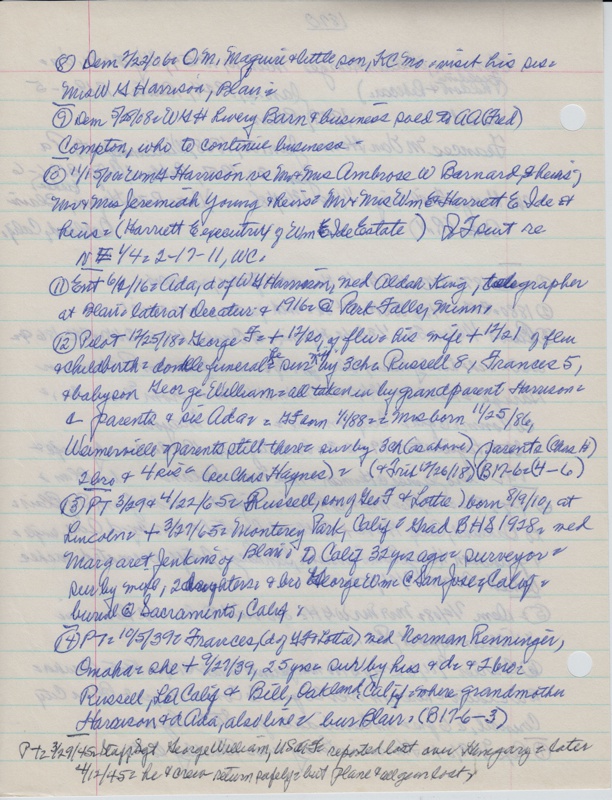 ⑧ Dem 2/22/06= O.M. Maguire & little son, KC Mo = visit his sis =
Mrs W H Harrison, Blair =
⑨ Dem 5/28/08= WHH livery Barn & business sold to AA (Fred)
Compton, who to continue business =
⑩ Wm H Harrison vs Mr & Mrs Ambrose W Barnard & heirs;
Mr & Mrs Jeremiah Young & heirs = Mr & Mrs Wm E & Harrett E Ide &
heirs = (Harrett Executrix of Wm E Ide Estate) re
N E 1/4 = 2-17-11, WC.
⑪ Ent 6/2/16 = Ada, d of WH Harrison, med Aldah King, telegrapher
at Blair = later at Decatur & 1916 = @ Park Falls, Minn.
⑫ Pilot 12/25/18 = George F = + 12/20, of flu = his wife + 12/21 of flu
& childbirth = double funeral = sur by 3 ch = Russell 8, Frances 5,
& baby son George William = all taken in by grandparent Harrison =
parents & sis Ada = = born 1/88 = Mrs born 11/25/86,
& parents still there = sur by 3 ch (as above) parents (Chas H)
2 bro & 4 sis = (see Chas Haynes) = (12/26/18) (B17-6=4-6)
⑬ PT 3/29 & 4/22/65 = Russell, son of Geo F & Lottie) born 8/9/10, at
Lincoln = + 3/27/65 = Monterey Park, Calif = Grad BHS 1928 = med
Margaret Jenkins of Blair = to Calif 32 yrs ago = surveyor =
sur by wife, 2 daughters & bro George Wm @ San Jose, Calif =
buried @ Sacramento, Calif =
⑭ PT = 10/5/39 = Frances, (d of & Lottie) med Norman Renninger,
Omaha = she + 9/27/39, 25 yrs = sur by hus & d = & 2 bro =
Russell, LA Calif & Bill, Oakland, Calif = where grandmother
Harrison & d Ada, also live = bur Blair = (B17-6-3)
PT = 3/29/45 = Staff Sgt George William, reported lost over Hungary = later
4/12/45 = he & crew return safely = but plane & all gear lost,